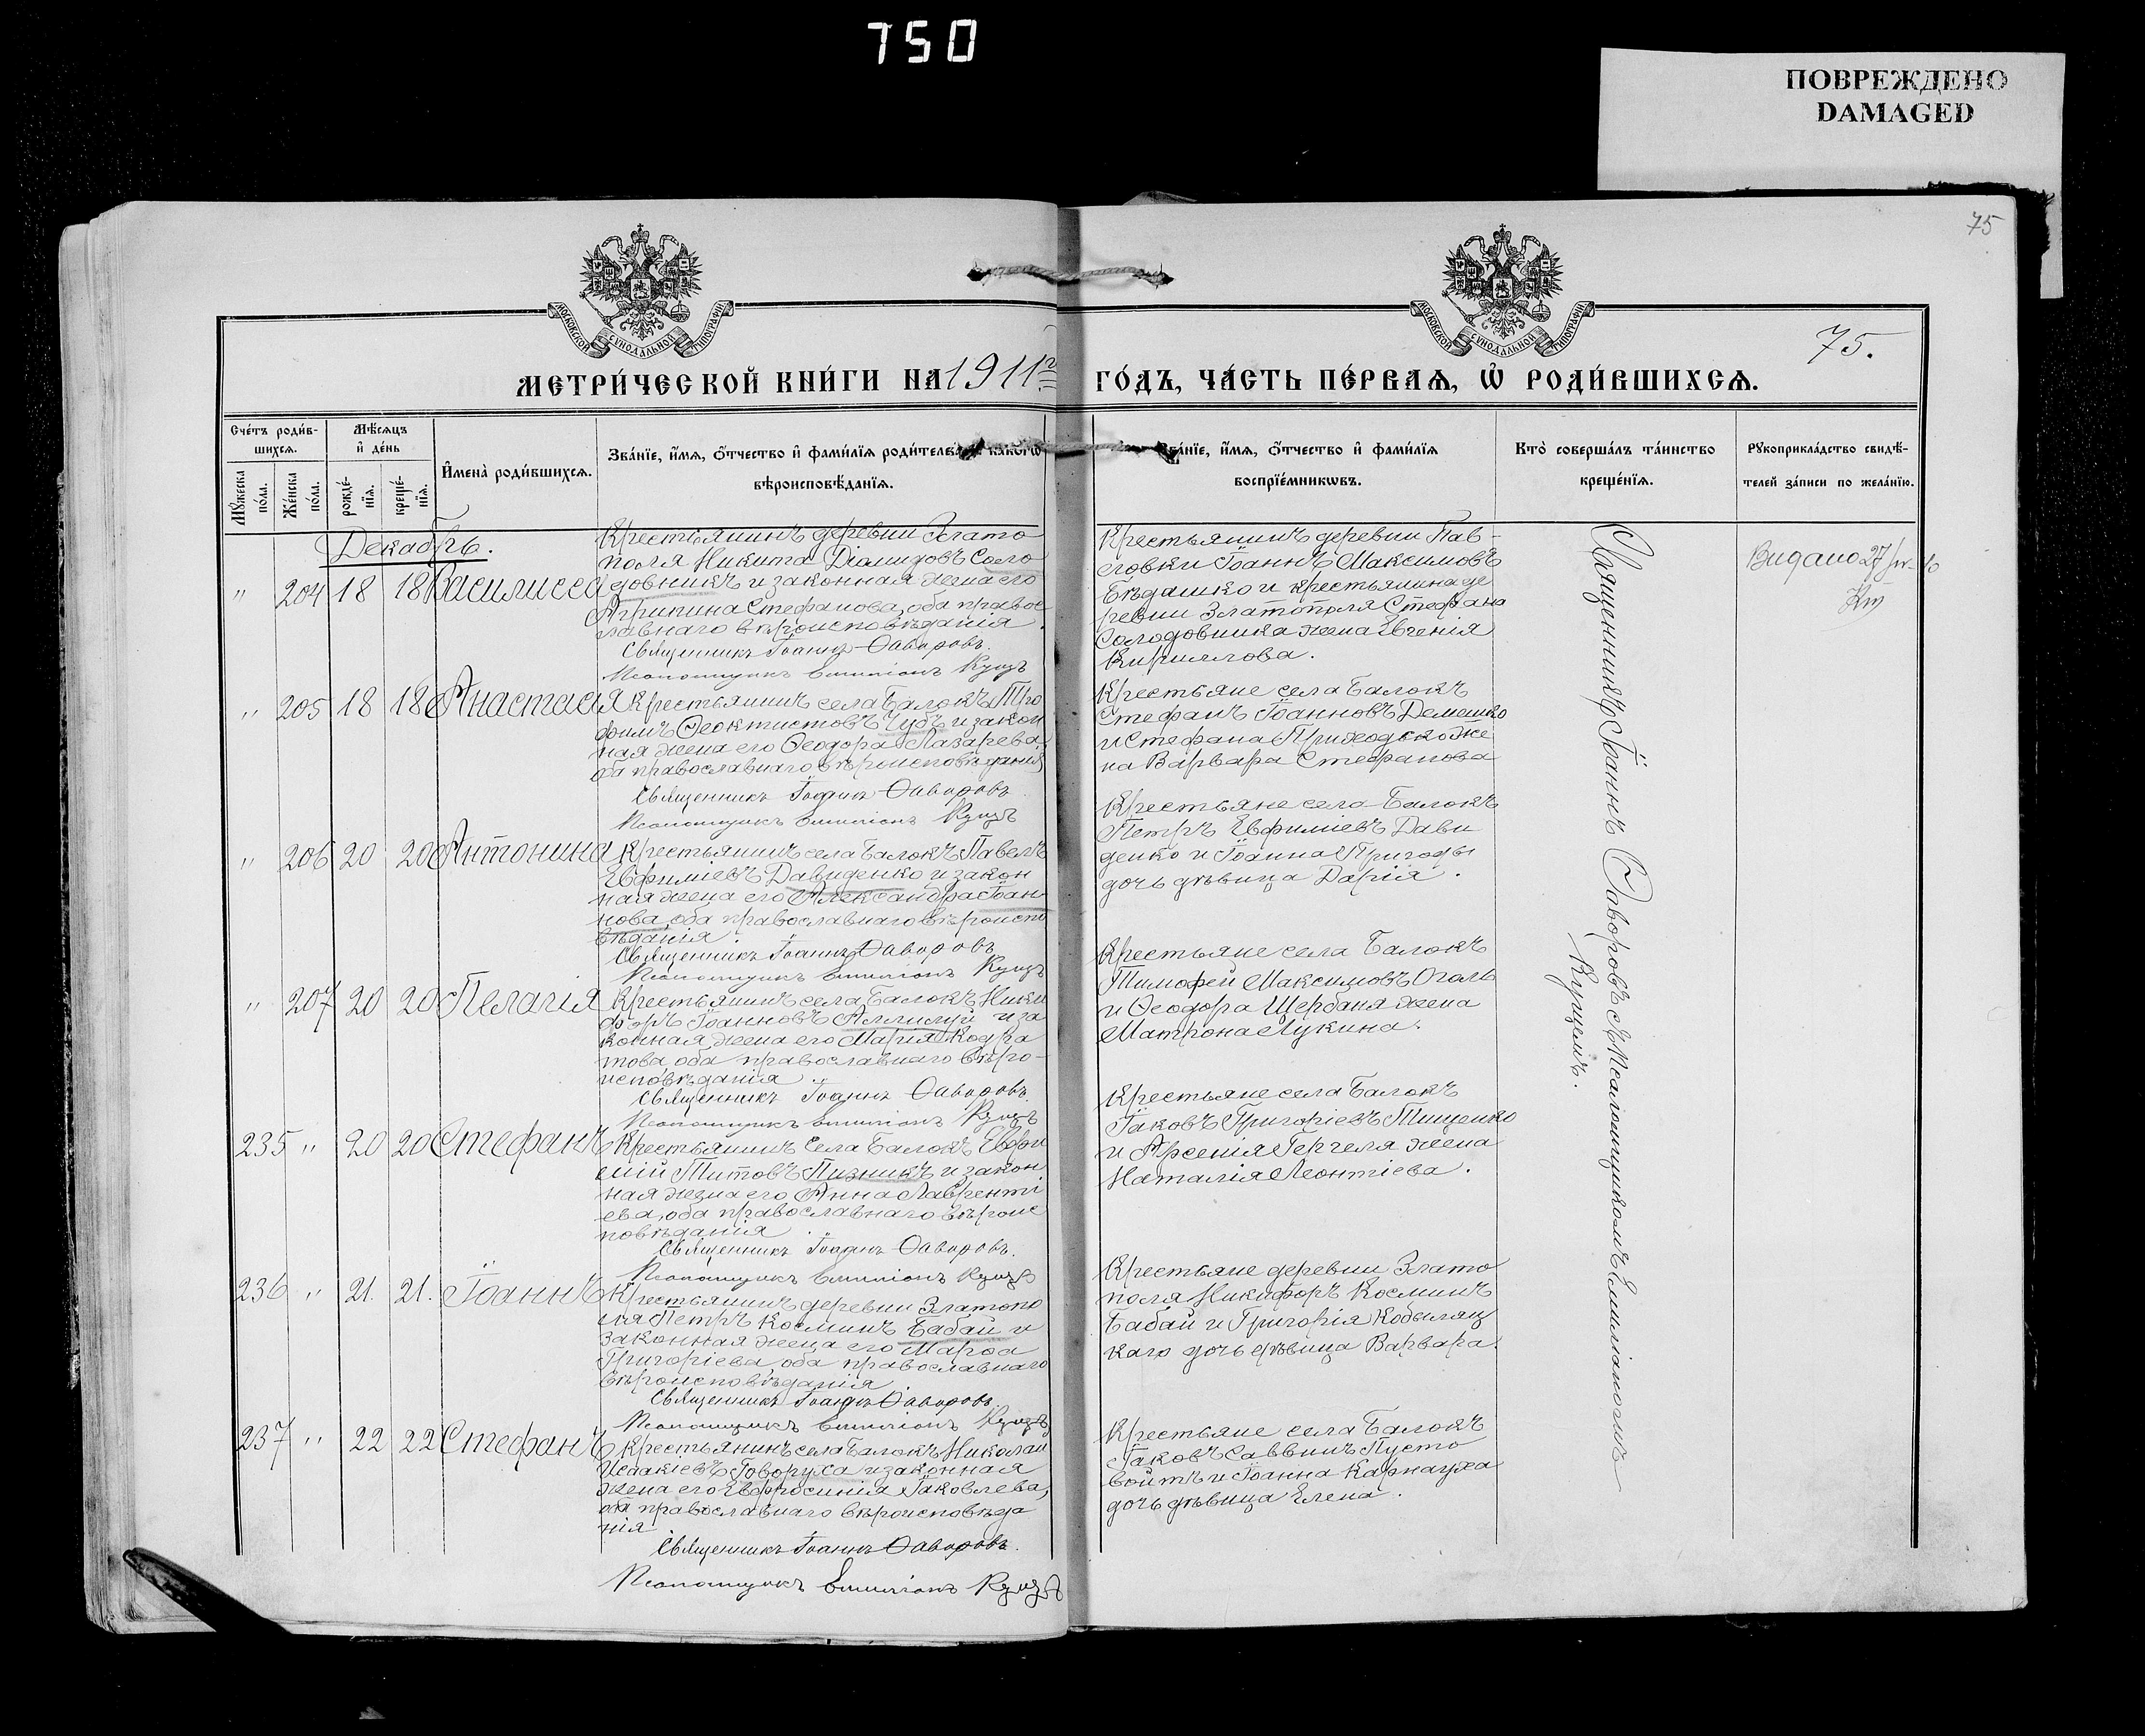 750
ПОВРЕЖДЕНО
DAMAGED
75
МОСКОВСКОЙ СѴНОДАЛЬНОЙ ТИПОГРАФІИ
МОСКОВСКОЙ СѴНОДАЛЬНОЙ ТИПОГРАФІИ
75.
МЕТРИ́ЧЕСКОЙ КНИ́ГИ НА 1911 г. ГО́ДЪ, ЧА́СТЬ ПЕ́РВАѦ, Ѡ҆ РОДИ́ВШИХСѦ.
Сче́тъ роди́в-
шихсѧ.
Мѣ́сѧцъ
и҆ де́нь
Мꙋ́жеска
по́ла.
Же́нска
по́ла.
рожде́-
нїѧ.
креще́-
нїѧ.
И҆мена̀ роди́вшихсѧ.
Зва́нїе, и҆́мѧ, ѻ҆́тчество и҆ фами́лїѧ роди́телей, и҆ како́гѡ
вѣроисповѣ́данїѧ.
Зва́нїе, и҆́мѧ, ѻ҆́тчество и҆ фами́лїѧ
воспрїе́мникѡвъ.
Кто̀ соверша́лъ та́инство
креще́нїѧ.
Рꙋкоприкла́дство свидѣ́-
телей за́писи по жела́нїю.
Декабрь.
" 204 18 18 Василисса
Крестьянинъ деревни Злато
поля Никита Діомидовъ Соло
довникъ и законная жена его
Агрипина Стефанова, оба правос
лавнаго вѣроисповѣданія.
Священникъ Іоаннъ Ѳаворовъ.
Псаломщикъ Емиліанъ Куцъ
Крестьянинъ деревни Пав-
еловки Іоаннъ Максимовъ
Бѣдашко и крестьянина де
ревни Златополя Стефана
Солодовника жена Евгенія
Кириллова.
Видано 27/
" 205 18 18 Анастасія
Крестьянинъ села Балокъ Тро
фимъ Ѳеоктистовъ Чубъ и закон
ная жена его Ѳеодора Лазарева,
оба православнаго вѣроисповѣданія
Священникъ Іоаннъ Ѳаворовъ
Псаломщикъ Емиліанъ Куцъ
Крестьяне села Балокъ
Стефанъ Іоанновъ Демешко
и Стефана Приходько же
на Варвара Стефанова
" 206 20 20 Антонина
Крестьянинъ села Балокъ Павелъ
Евфиміевъ Давиденко и закон
ная жена его Александра Іоан-
нова, оба православнаго вѣроиспо
вѣданія.
Священникъ Іоаннъ Ѳаворовъ
Псаломщикъ Емиліанъ Куцъ
Крестьяне села Балокъ
Петръ Евфиміевъ Дави
денко и Іоанна Пригоды
дочь дѣвица Дарія.
" 207 20 20 Пелагія
Крестьянинъ села Балокъ Ники
форъ Іоанновъ Аллилуй и за
конная жена его Марія Кодра
това, оба православнаго вѣро-
исповѣданія.
Священникъ Іоаннъ Ѳаворовъ.
Псаломщикъ Емиліанъ Куцъ
Крестьяне села Балокъ
Тимофей Максимовъ Оголь
и Ѳеодора Щербаня жена
Матрона Лукина.
235 " 20 20 Стефанъ
Крестьянинъ села Балокъ Евфи
мій Титовъ Пизникъ и закон
ная жена его Анна Лаврентi
ева, оба православнаго вѣроис
повѣданія
Священникъ Іоаннъ Ѳаворовъ.
Псаломщикъ Емиліанъ Куцъ
Крестьяне села Балокъ
Іаковъ Григоріевъ Тищенко
и Арсенія Гергеля жена
Наталія Леонтіева.
236 " 21. 21. Іоаннъ
Крестьянинъ деревни Златопо
ля Петръ Косминъ Бабай и
законная жена его Марѳа
Григоріева, оба православнаго
вѣроисповѣданія.
Священникъ Іоаннъ Ѳаворовъ
Псаломщикъ Емиліанъ Куцъ
Крестьяне деревни Злато
поля Никифоръ Косминъ
Бабай и Григорія Кобыляц
каго дочь дѣвица Варвара.
237 " 22 22 Стефанъ
Крестьянинъ села Балокъ Николай
Исаакіевъ Говоруха и законная
жена его Евфросинія Іаковлева,
оба православнаго вѣроисповѣда
нія
Священникъ Іоаннъ Ѳаворовъ.
Псаломщикъ Емиліанъ Куцъ
Крестьяне села Балокъ
Іаковъ Саввинъ Пусто
войтъ и Іоанна Карнауха
дочь дѣвица Елена.
Священникъ Іоаннъ Ѳаворовъ съ псаломщикомъ Емиліаномъ
Куцемъ.